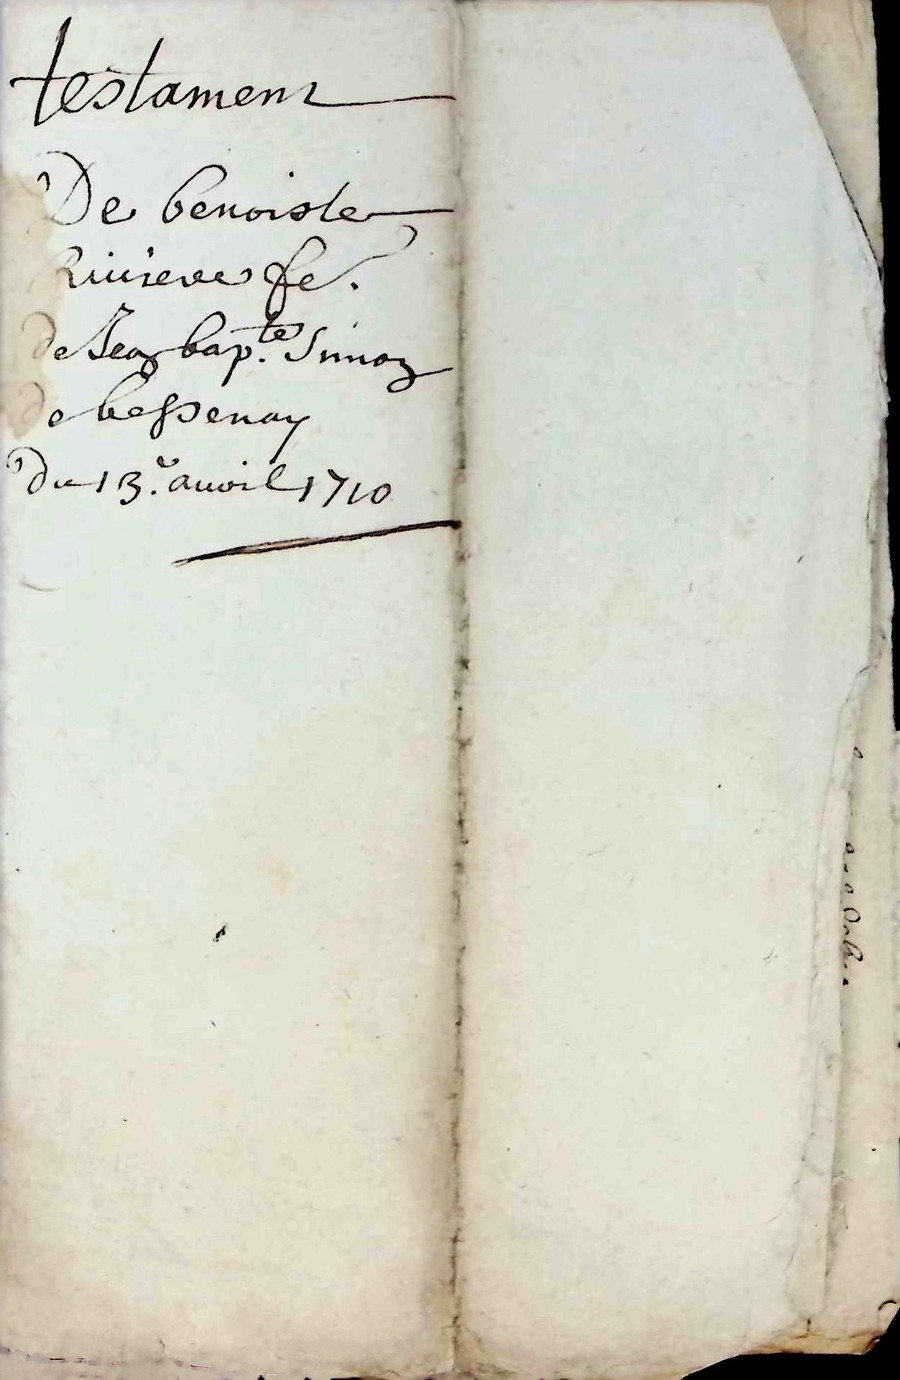 testament
De benoiste
Riuiere fe.
de Jean bap.te Simon
de bessenay
Du 13.e auril 1710